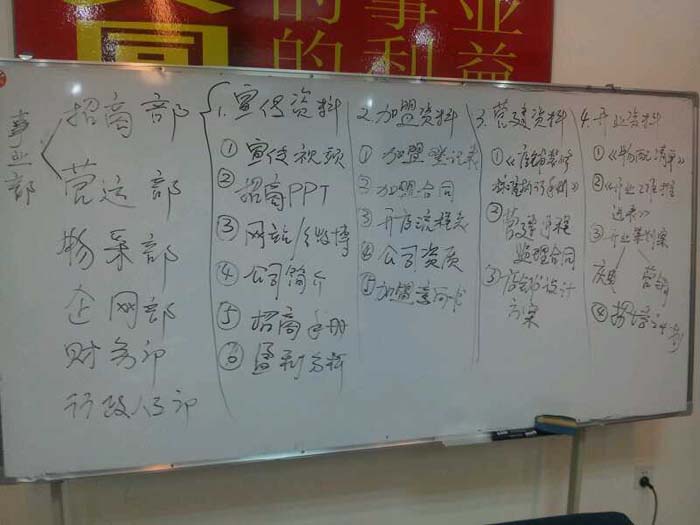 的事业
的利益
事业部
招商部
营运部
物采部
企网部
财务部
行政人事部
1.宣传资料
①宣传视频
②招商PPT
③网站/微博
④公司简介
⑤招商手册
⑥盈利分析
2.加盟资料
①加盟登记表
②加盟合同
③开店流程表
④公司资质
⑤加盟意向书
3.营建资料
①《店铺装修
标准执行手册》
②营建工程
监理合同
③店铺设计
方案
4.开业资料
①《物配清单》
②《开业工作推
进表》
③开业策划案
④